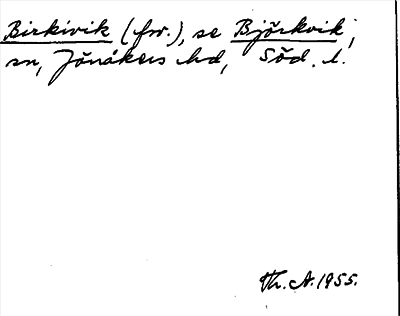 Birkivik (fw.), se Björkvik,
sn, Jönåkers hd, Söd. l.
Th. A. 1955.